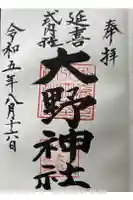 奉拝
延喜式内社
大野神社
令和五年八月十六日